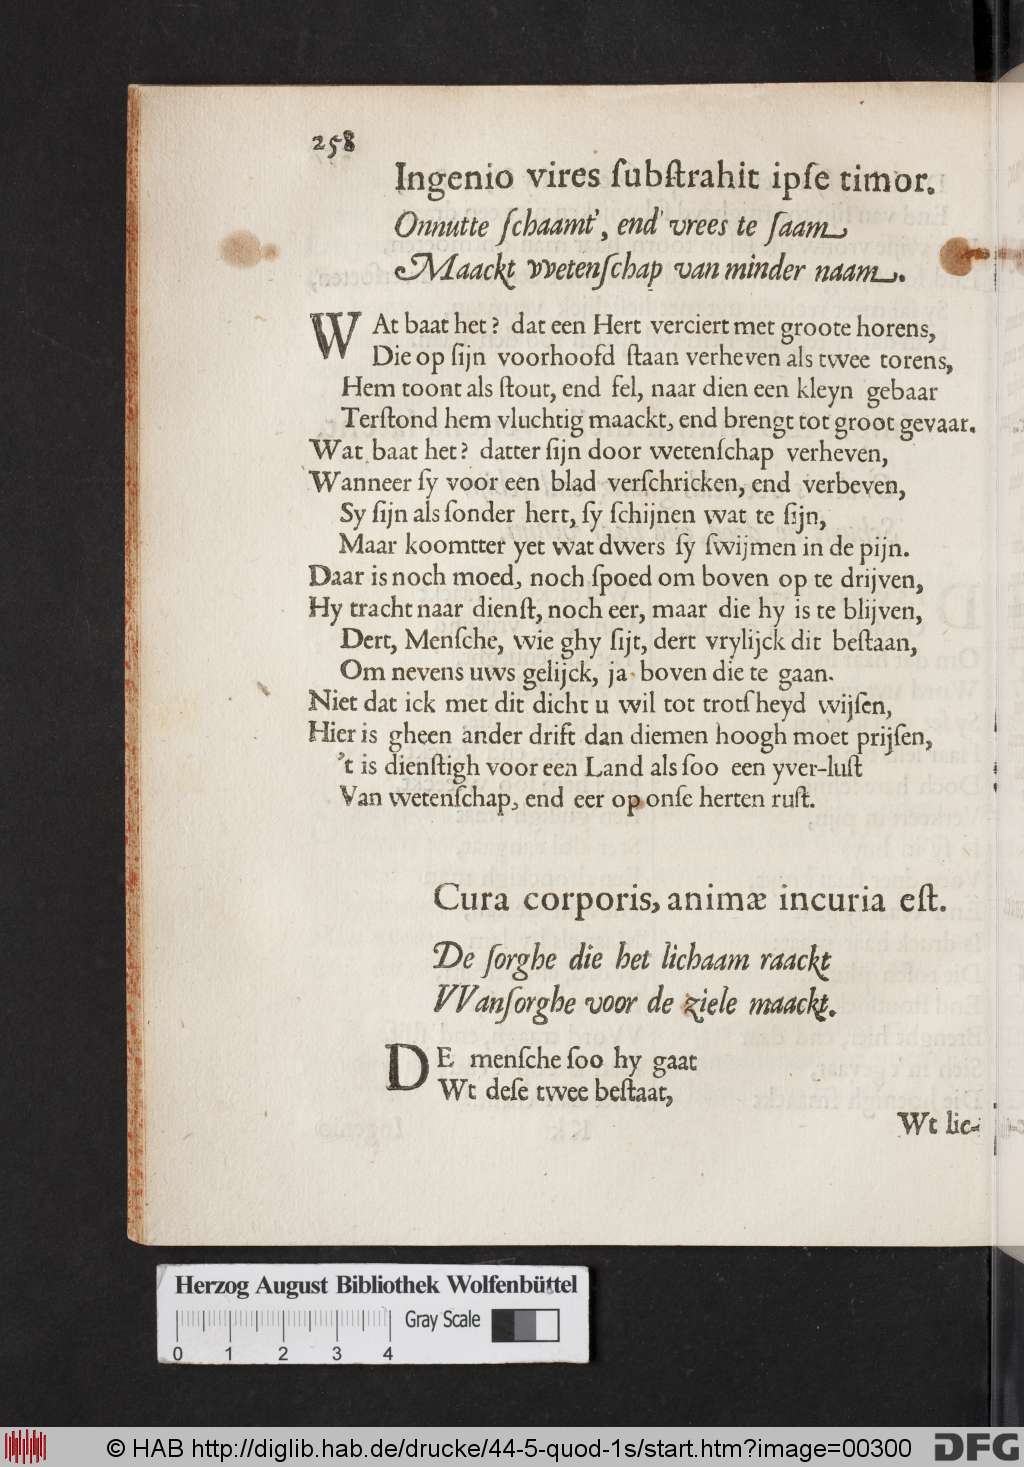 258
Ingenio vires ſubſtrahit ipſe timor.
Onnutte ſchaamt', end' vrees te ſaam
Maackt wetenſchap van minder naam.
WAt baat het? dat een Hert verciert met groote horens,
Die op ſijn voorhoofd ſtaan verheven als twee torens,
Hem toont als ſtout, end fel, naar dien een kleyn gebaar
Terſtond hem vluchtig maackt, end brengt tot groot gevaar.
Wat baat het? datter ſijn door wetenſchap verheven,
Wanneer ſy voor een blad verſchricken, end verbeven,
Sy ſijn als ſonder hert, ſy ſchijnen wat te ſijn,
Maar koomtter yet wat dwers ſy ſwijmen in de pijn.
Daar is noch moed, noch ſpoed om boven op te drijven,
Hy tracht naar dienſt, noch eer, maar die hy is te blijven,
Dert, Menſche, wie ghy ſijt, dert vrylijck dit beſtaan,
Om nevens uws gelijck, ja boven die te gaan.
Niet dat ick met dit dicht u wil tot trotſheyd wijſen,
Hier is gheen ander drift dan diemen hoogh moet prijſen,
't is dienſtigh voor een Land als ſoo een yver-luſt
Van wetenſchap, end eer op onſe herten ruſt.
Cura corporis, animæ incuria eſt.
De ſorghe die het lichaam raackt
VVanſorghe voor de ziele maackt.
DE menſche ſoo hy gaat
Wt deſe twee beſtaat,
Wt lic-
Herzog August Bibliothek Wolfenbüttel
Gray Scale
0 1 2 3 4
© HAB http://diglib.hab.de/drucke/44-5-quod-1s/start.htm?image=00300
DFG